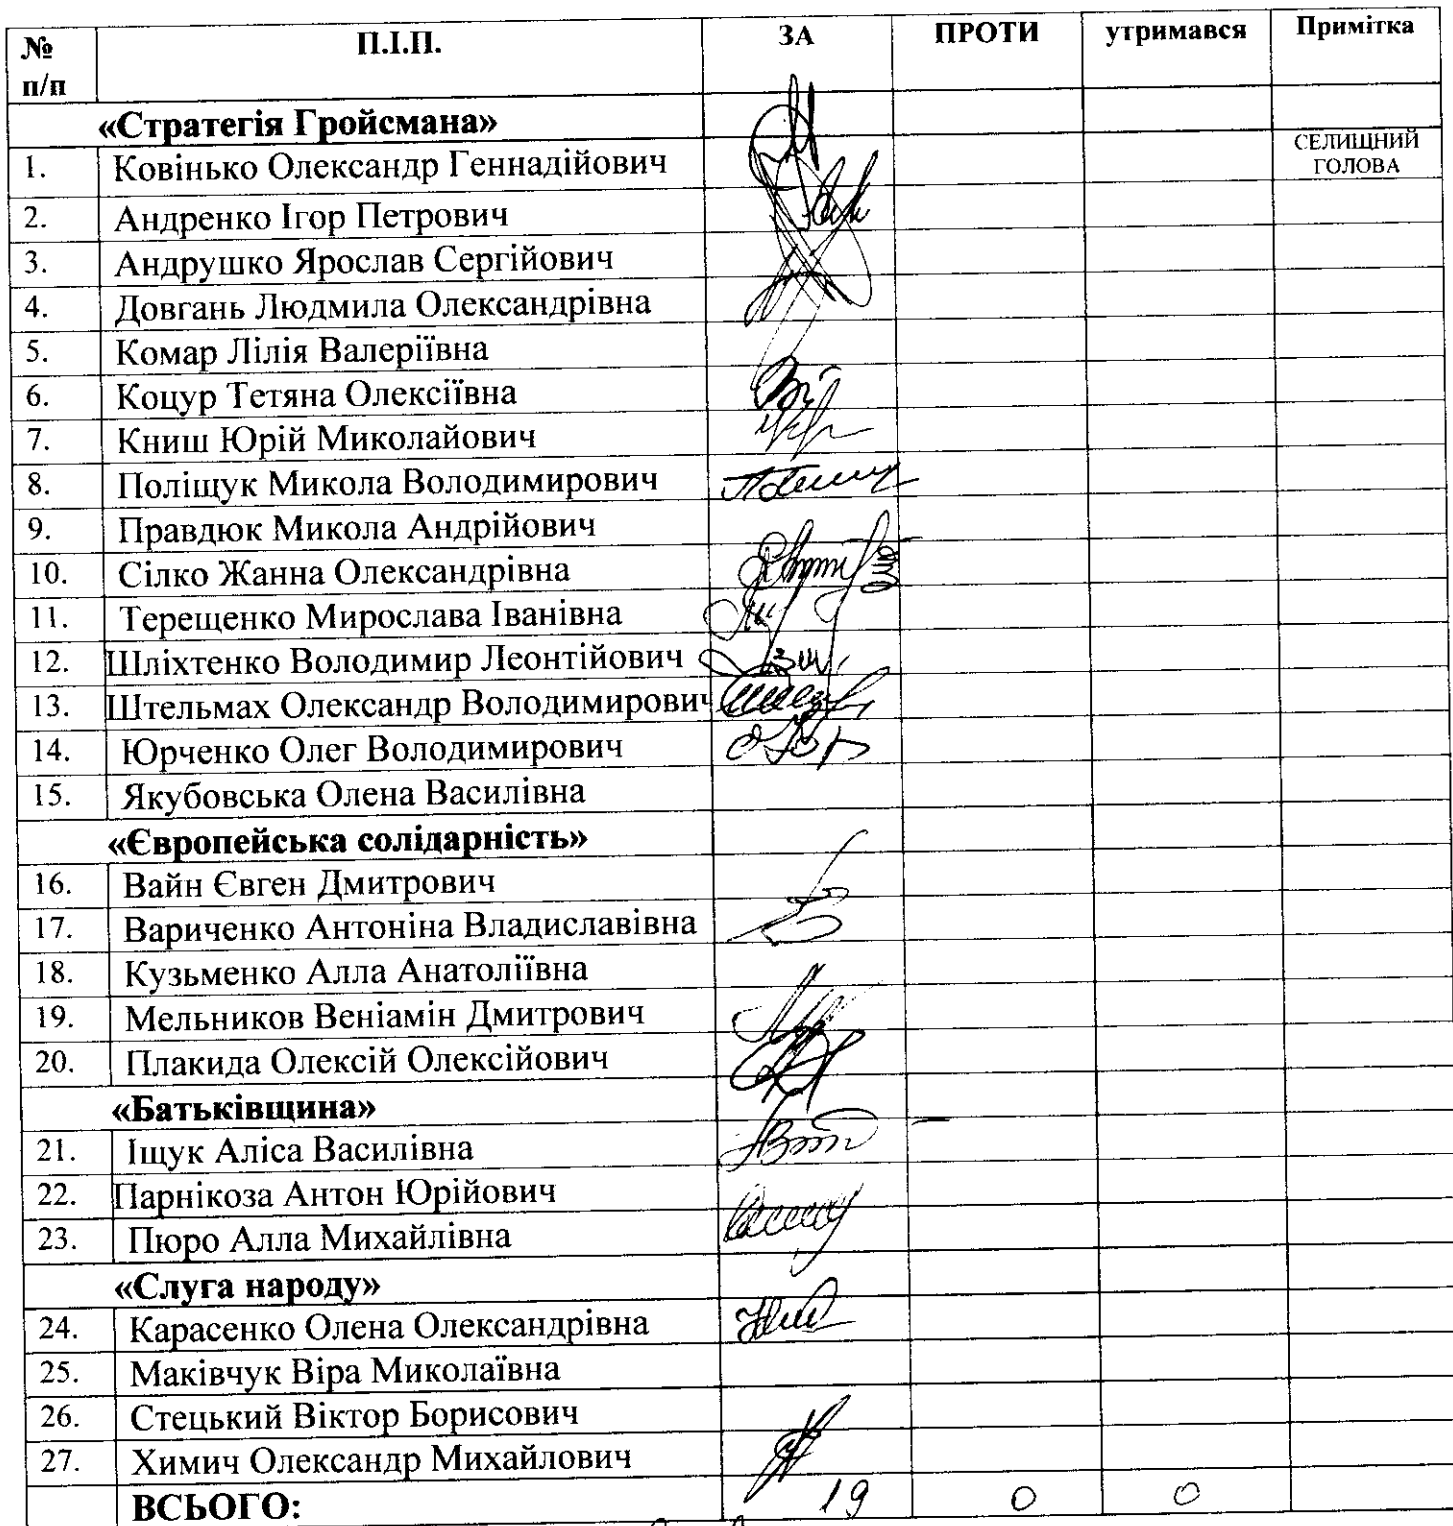 № п/п П.І.П. ЗА ПРОТИ утримався Примітка
«Стратегія Гройсмана»
1. Ковінько Олександр Геннадійович СЕЛИЩНИЙ ГОЛОВА
2. Андренко Ігор Петрович
3. Андрушко Ярослав Сергійович
4. Довгань Людмила Олександрівна
5. Комар Лілія Валеріївна
6. Коцур Тетяна Олексіївна
7. Книш Юрій Миколайович
8. Поліщук Микола Володимирович
9. Правдюк Микола Андрійович
10. Сілко Жанна Олександрівна
11. Терещенко Мирослава Іванівна
12. Шліхтенко Володимир Леонтійович
13. Штельмах Олександр Володимирович
14. Юрченко Олег Володимирович
15. Якубовська Олена Василівна
«Європейська солідарність»
16. Вайн Євген Дмитрович
17. Вариченко Антоніна Владиславівна
18. Кузьменко Алла Анатоліївна
19. Мельников Веніамін Дмитрович
20. Плакида Олексій Олексійович
«Батьківщина»
21. Іщук Аліса Василівна
22. Парнікоза Антон Юрійович
23. Пюро Алла Михайлівна
«Слуга народу»
24. Карасенко Олена Олександрівна
25. Маківчук Віра Миколаївна
26. Стецький Віктор Борисович
27. Химич Олександр Михайлович
ВСЬОГО: 19 0 0